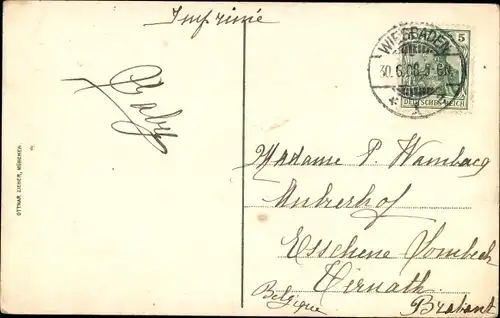 Imprimé
Gaby
OTTMAR ZIEHER, MÜNCHEN.
WIESBADEN
5
30.6.08. 5-6N.
DEUTSCHES REICH
Madame P. Wambacq
Esschene Lombeek
Ternath
Belgique
Brabant